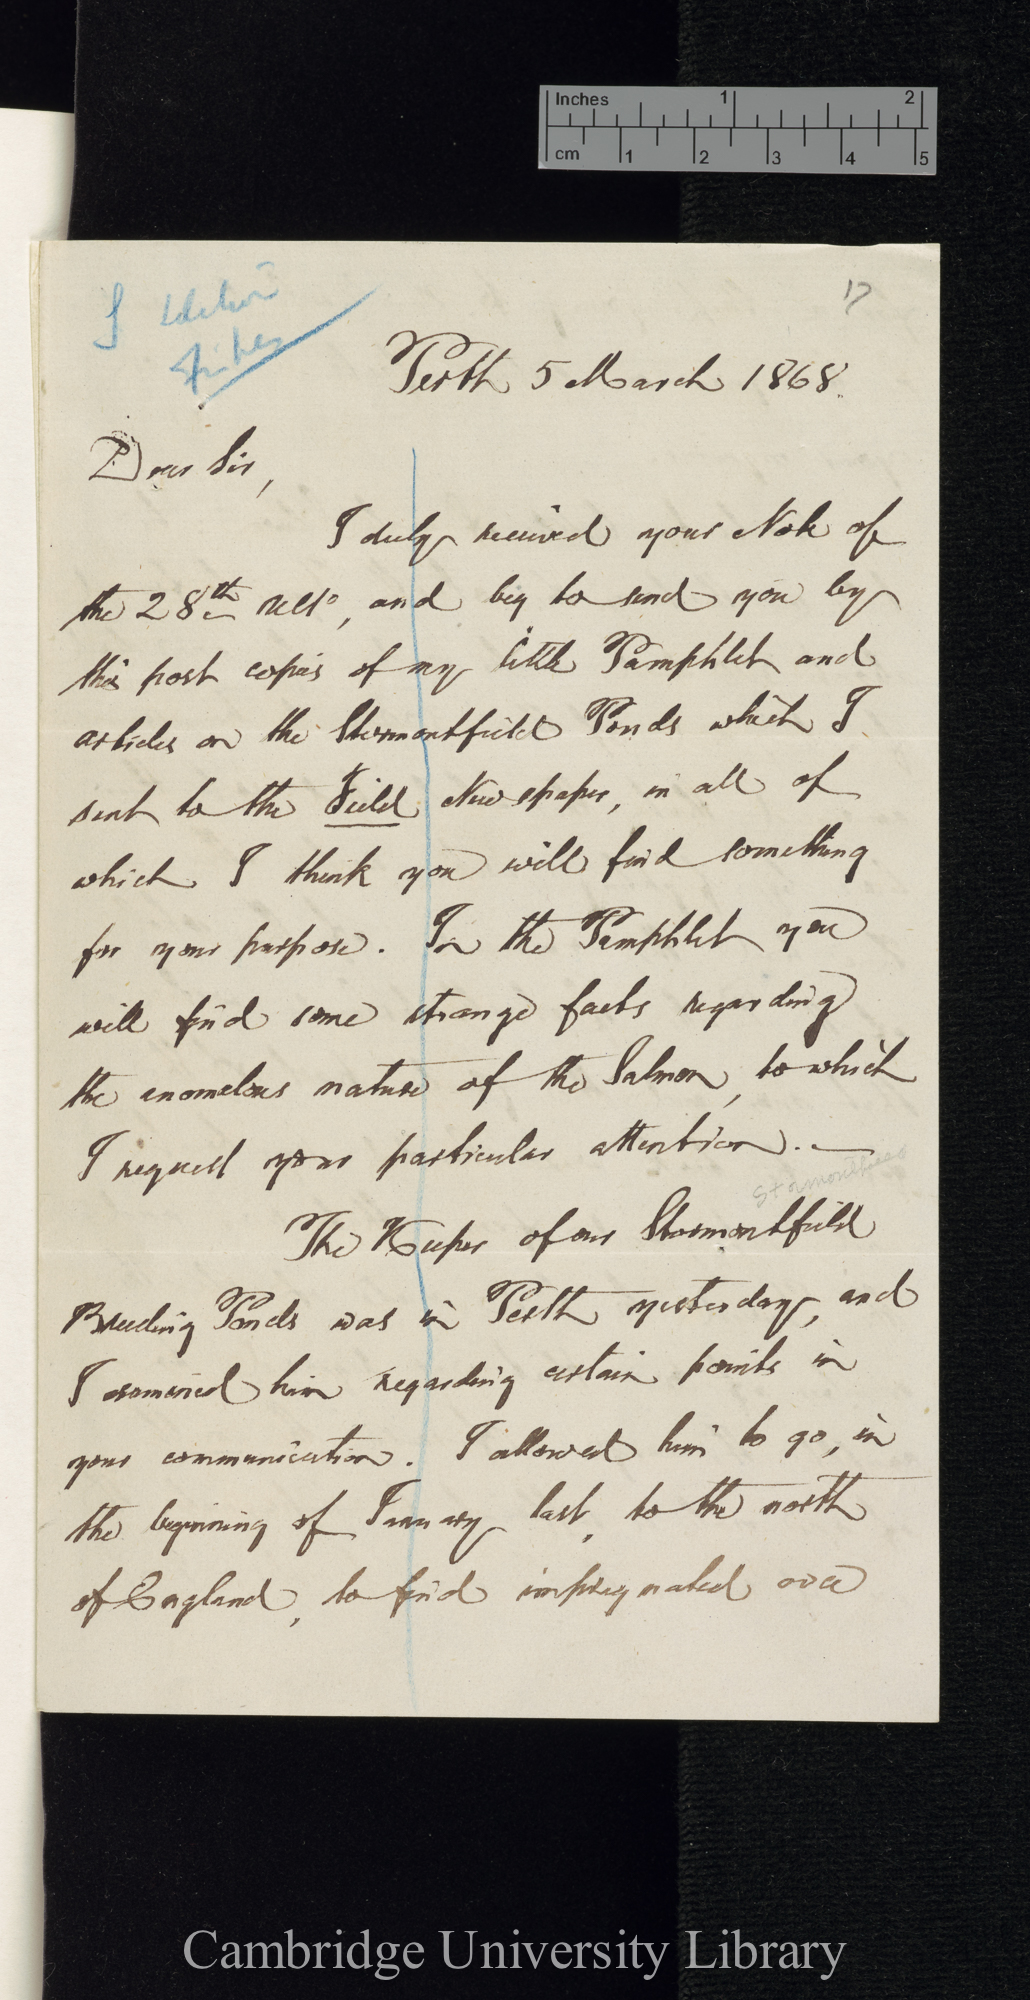 Inches 1 2
cm 1 2 3 4 5
17
Perth 5 March 1868.
Dear Sir,
I duly received your Note of
the 28th ulto, and beg to send you by
this post copies of my little Pamphlet and
articles on the Stormontfield Ponds which I
sent to the Field Newspaper, in all of
which I think you will find something
for your purpose. In the Pamphlet you
will find some strange facts regarding
the anomalous nature of the Salmon, to which
I request your particular attention.—
Stormontfield
The Keeper of our Stormontfield
Breeding Ponds was in Perth yesterday, and
I examined him regarding certain points in
your communication. I allowed him to go, in
the beginning of January last, to the north
of England, to find impregnated ova
Cambridge University Library